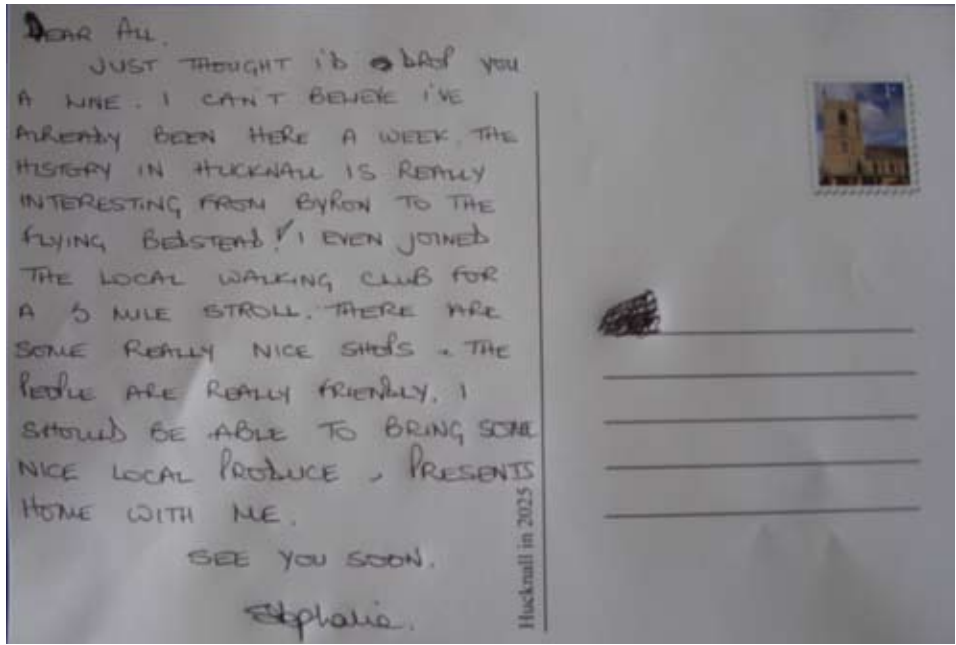 DEAR ALL.
JUST THOUGHT I'D DROP YOU
A LINE. I CAN'T BELIEVE I'VE
ALREADY BEEN HERE A WEEK. THE
HISTORY IN HUCKNALL IS REALLY
INTERESTING FROM BYRON TO THE
FLYING BEDSTEAD! I EVEN JOINED
THE LOCAL WALKING CLUB FOR
A 5 MILE STROLL. THERE ARE
SOME REALLY NICE SHOPS. THE
PEOPLE ARE REALLY FRIENDLY. I
SHOULD BE ABLE TO BRING SOME
NICE LOCAL PRODUCE, PRESENTS
HOME WITH ME.
SEE YOU SOON.
Stephanie.
Hucknall in 2025